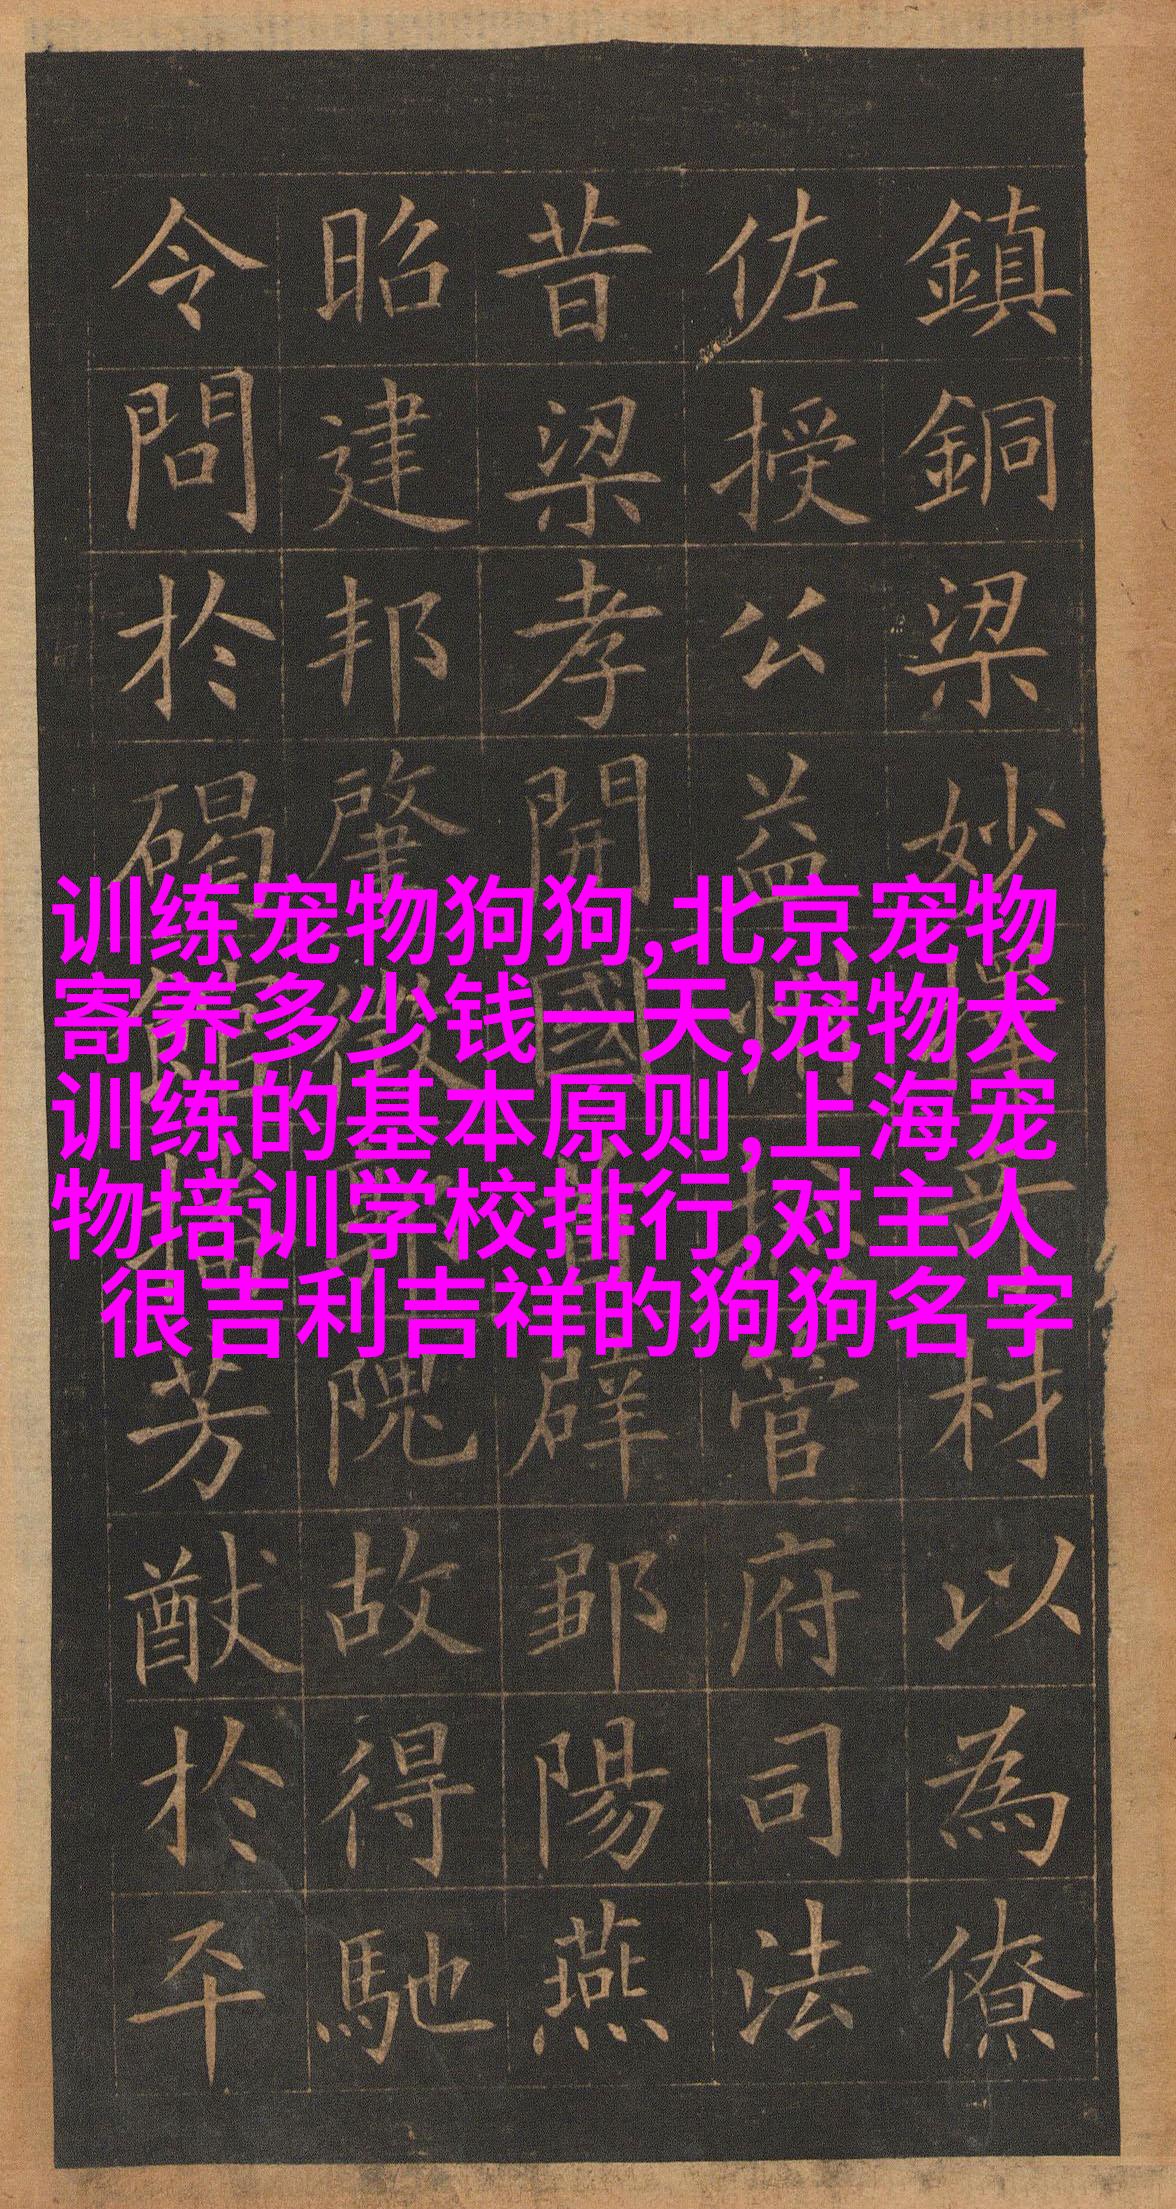 鎮銅梁妙擇奇材以為僚
佐授公益州揔管府司法
昔梁孝開國首辟鄒陽燕
昭建邦肇徵郭隗故得馳
令問於碣館播芳猷於平
训练宠物狗狗,北京宠物
寄养多少钱一天,宠物犬
训练的基本原则,上海宠
物培训学校排行,对主人
很吉利吉祥的狗狗名字